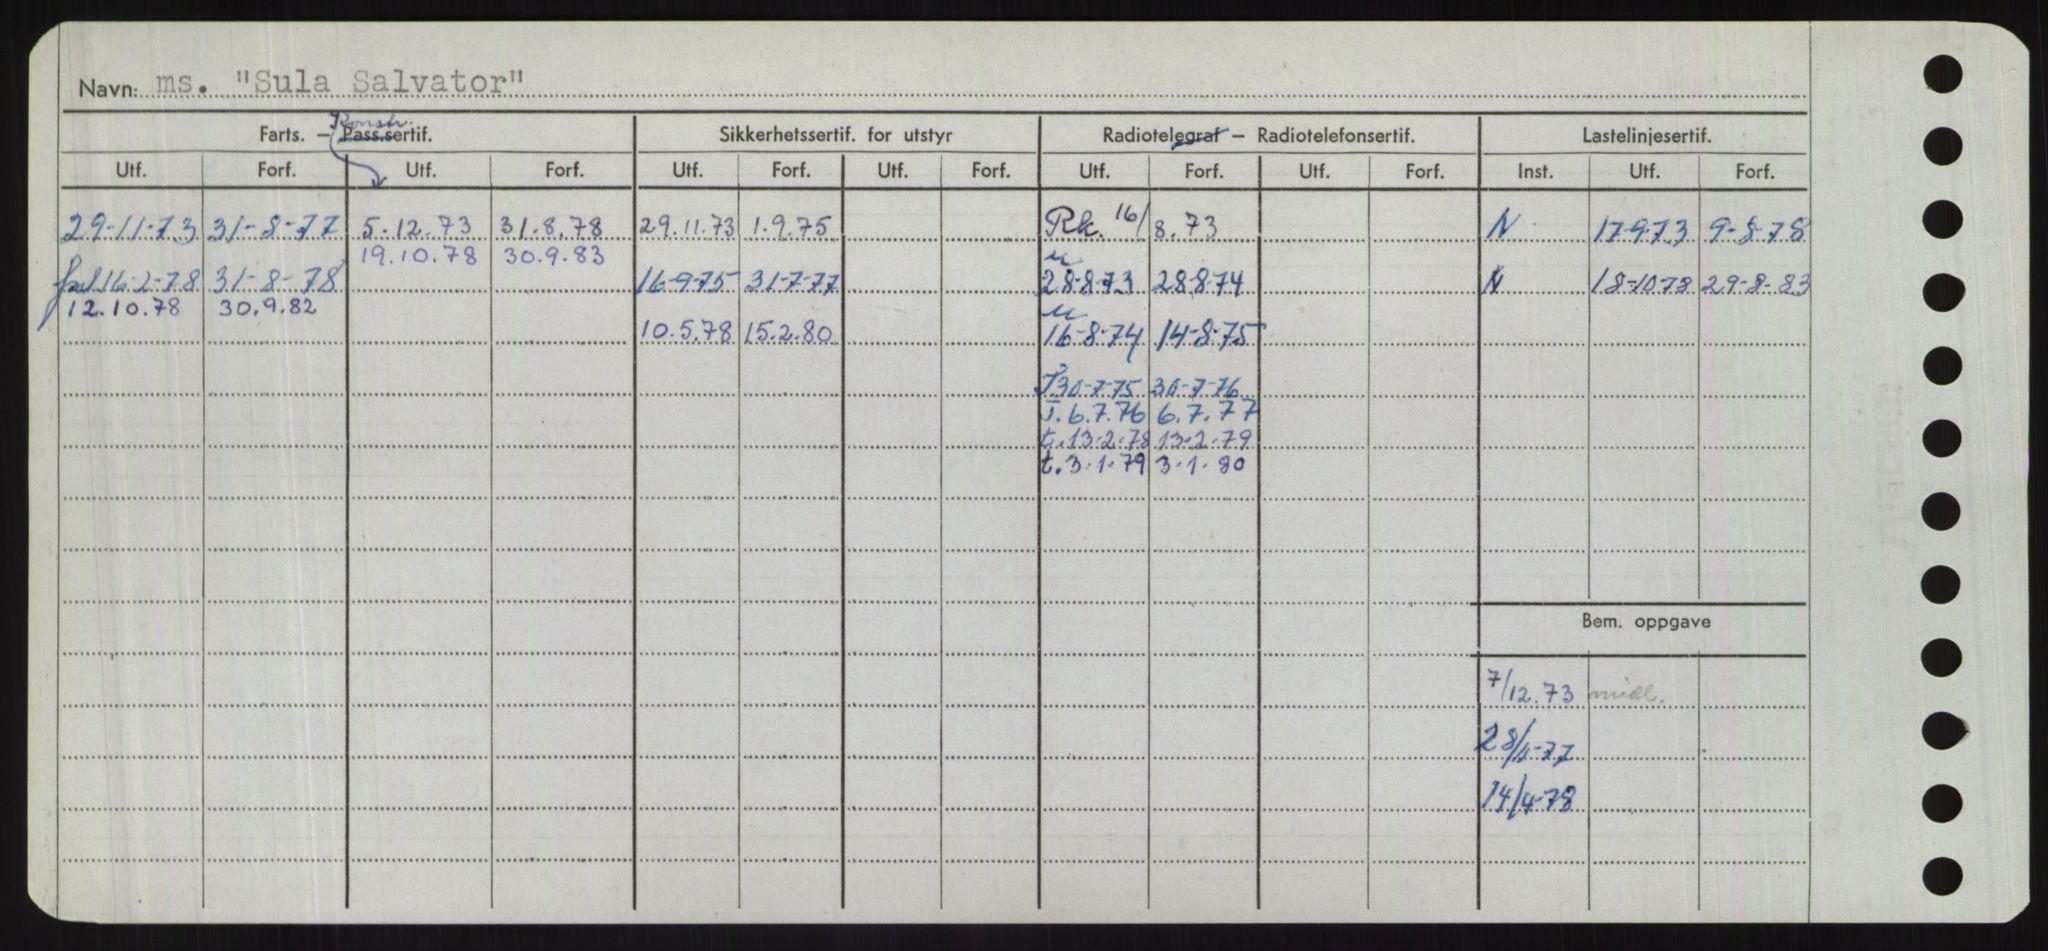 Navn: ms. "Sula Salvator"
Konstr.
Farts. – Pass.sertif. Sikkerhetssertif. for utstyr Radiotelegraf – Radiotelefonsertif. Lastelinjesertif.
Utf. Forf. Utf. Forf. Utf. Forf. Utf. Forf. Utf. Forf. Utf. Forf. Inst. Utf. Forf.
29-11-73 31-8-77 5.12.73 31.8.78 29.11.73 1.9.75 Rk. 16/8.73 N 17-9-73 9-8-78
19.10.78 30.9.83
16-2-78 31-8-78 16-9-75 31-7-77 28-8-73 28-8-74 N 18-10-78 29-8-83
12.10.78 30.9.82
10.5.78 15.2.80 16-8-74 14-8-75
T.30-7-75 30-7-76
T.6.7.76 6.7.77
t.13-2-78 13-2-79
t.3.1.79 3.1.80
Bem. oppgave
7/12.73 midl.
14/4-78